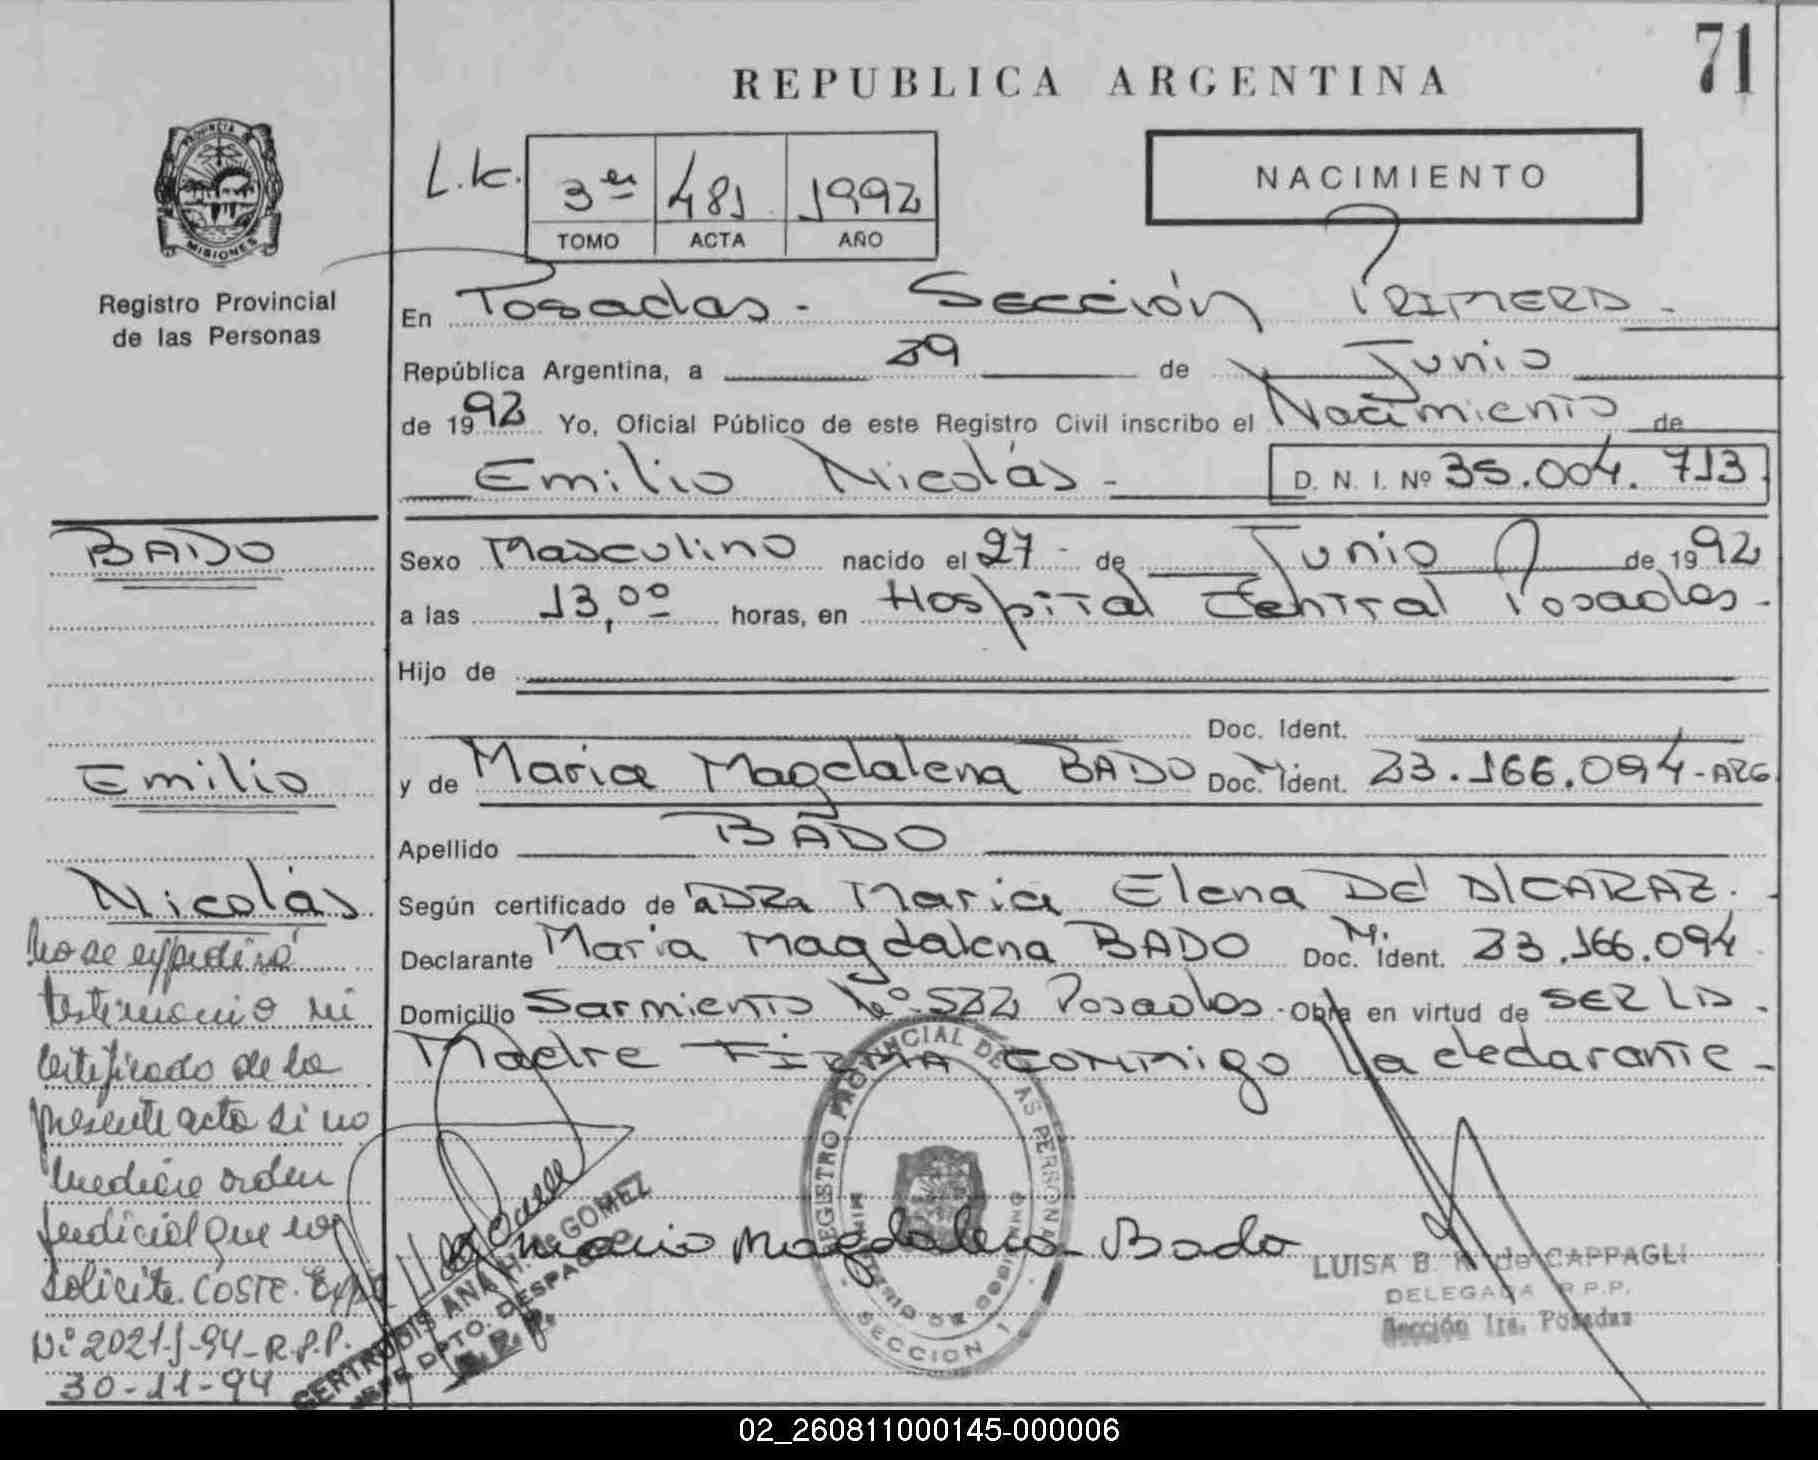 71
REPUBLICA ARGENTINA
PROVINCIA DE
MISIONES
Registro Provincial
de las Personas
L.k.
3er 481 1992
TOMO ACTA AÑO
NACIMIENTO
En Posadas - Sección PRIMERA -
República Argentina, a 29 de Junio
de 1992 Yo, Oficial Público de este Registro Civil inscribo el Nacimiento de
Emilio Nicolás - D. N. I. Nº 35.004.713
Sexo Masculino nacido el 27 - de Junio de 1992
a las 13,00 horas, en Hospital Central Posadas -
Hijo de
Doc. Ident.
y de Maria Magdalena BADO Doc. M. Ident. 23.166.094-ARG
Apellido BADO
Según certificado de a DRa Maria Elena DE ALCARAZ.
Declarante Maria Magdalena BADO Doc. M. Ident. 23.166.094
Domicilio Sarmiento Nº 522 Posadas - Obra en virtud de SER LA -
Madre FIRMA conmigo la declarante -
BADO
Emilio
Nicolás
No se expedirá
testimonio ni
certificado de la
presente acta si no
medie orden
judicial que lo
solicite. COSTE. Expte
Nº 2021-J-94-R.P.P.
30-11-94
GERTRUDIS ANA H. de GOMEZ
JEFE DPTO. DESPACHO
R. P. P.
Maria Magdalena Bado
REGISTRO PROVINCIAL DE LAS PERSONAS
MINISTERIO DE GOBIERNO
SECCION 1
LUISA B. K. de CAPPAGLI
DELEGADA R.P.P.
Sección 1ra. Posadas
02_260811000145-000006